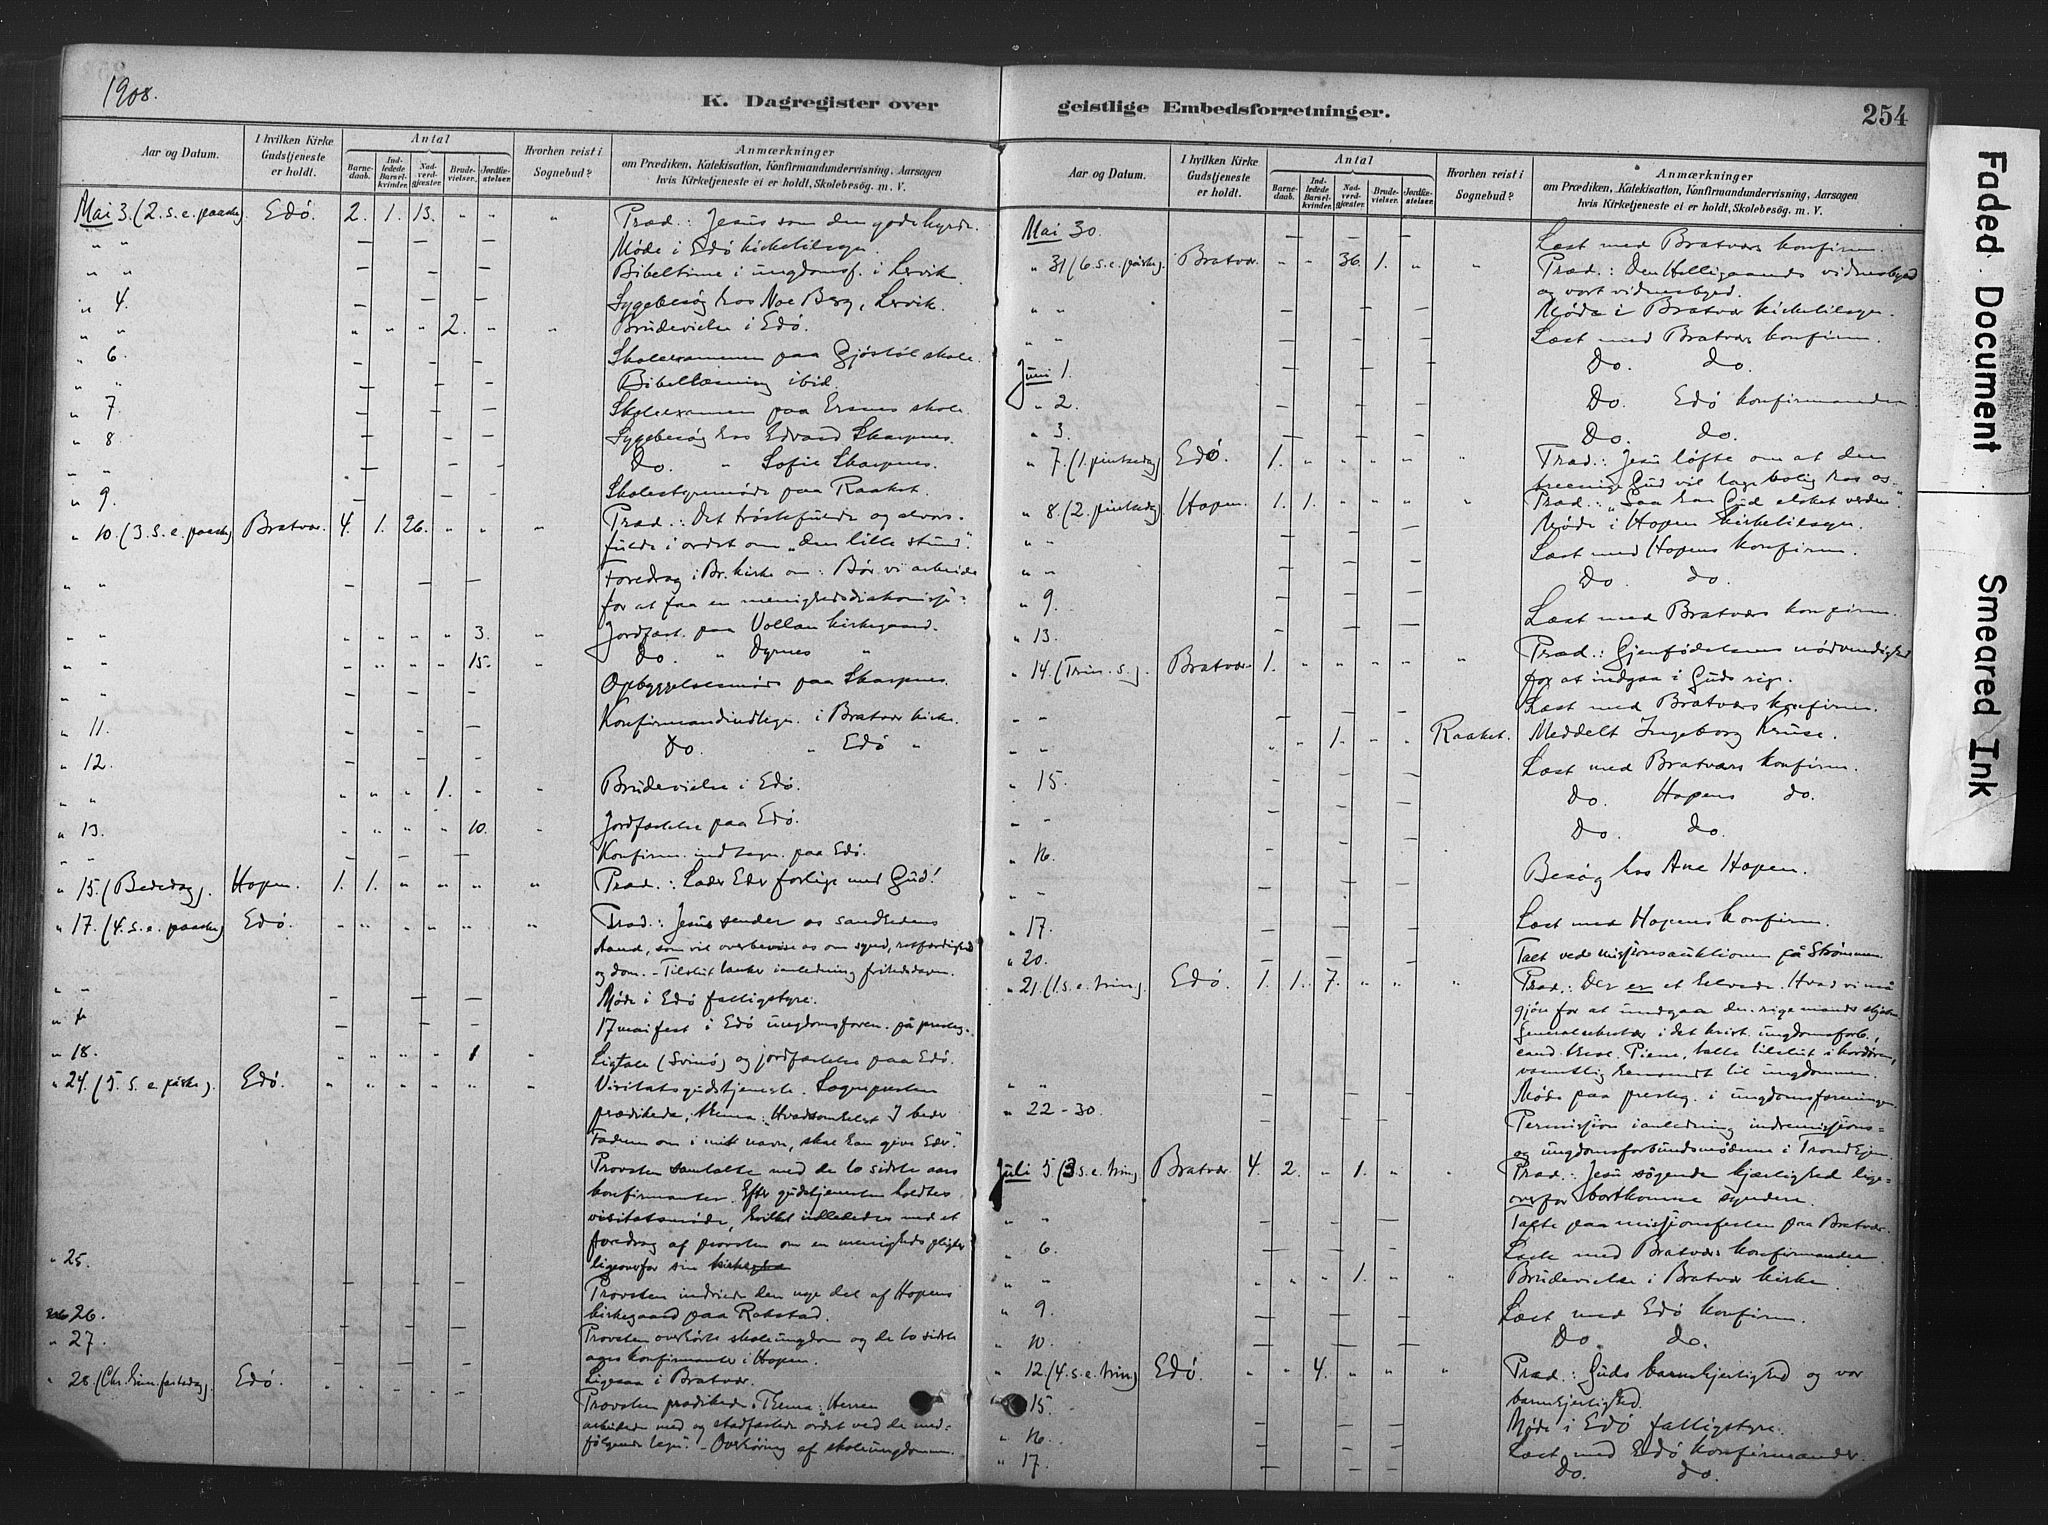 1908.
K. Dagregister over geistlige Embedsforretninger.
254
Aar og Datum.
I hvilken Kirke Gudstjeneste er holdt.
Antal
Barnedaab.
Indledede Barselkvinder.
Nadverdgjæster.
Brudevielser.
Jordfæstelser.
Hvorhen reist i Sognebud?
Anmærkninger
om Prædiken, Katekisation, Konfirmandundervisning, Aarsagen
hvis Kirketjeneste ei er holdt, Skolebesög. m. V.
Mai 3. (2. s. e. paaske) Edø. 2. 1. 13. " " " Præd.: Jesus som den gode hyrde.
" " Møde i Edø kirketilsyn.
" " Bibeltime i ungdomsf. i Lervik.
" 4. Sygebesøg hos Noe Berg, Lervik.
" " " " " 2. " " Brudevielse i Edø.
" 6 Skoleexamen paa Gjøstøl skole.
" " Bibellæsning ibid.
" 7 Skoleexamen paa Ersnes skole.
" 8 Sygebesøg hos Edvard Skarpnes.
" " Do. " Sofie Skarpnes.
" 9 Skolestyremøde paa Raaket.
" 10. (3. s. e. paaske) Bratvær. 4. 1. 26. " " " Præd.: Det trøstefulde og alvors-
fulde i ordet om "den lille stund".
" " Foredrag i Br. kirke om: Bør vi arbeide
for at faa en menighedsdiakonisse?
" " " " " " 3. " Jordfæst. paa Vollan kirkegaard.
" " " " " " 15. " Do. " Dyrnes "
" " Opbyggelsesmøde paa Skarpnes.
" 11. Konfirmandindtegn. i Bratvær kirke.
" 12. Do. " Edø "
" " " " " 1. " " Brudevielse i Edø.
" 13. " " " " 10. " Jordfæstelse paa Edø.
" " Konfirm. indtegn. paa Edø.
" 15. (Bededag). Hopen. 1. 1. " " " " Præd.: Lader Eder forlige med Gud!
" 17. (4. s. e. paaske) Edø. " " " " " " Præd.: Jesus sender os sandhedens
Aand, som vil overbevise os om synd, retfærdighed
og dom. - Tilslut tanker i anledning frihedsdagen.
" " Møde i Edø fattigstyre.
" " 17 mai fest i Edø ungdomsforen. på presteg.
" 18. " " " " 1 " Ligtale (Svinø) og jordfæstelse paa Edø.
" 24. (5. s. e. påske). Edø. " " " " " " Visitatsgudstjeneste. Sognepresten
prædikede, thema: "Hvadsomhelst I beder
Faderen om i mit navn, skal han give Eder."
Provsten samtalte med de to sidste aars
konfirmanter. Efter gudstjenesten holdtes
visitatsmøde, hvilket indlededes med et
foredrag af provsten om en menigheds pligter
ligeoverfor sin
" 25. Provsten indviede den nye del af Hopens
kirkegaard paa Rokstad.
" 26. Provsten overhørte skoleungdom og de to sidste
ages konfirmanter i Hopen.
" 27. Ligesaa i Bratvær.
" 28. (Chr. himmelfartsdag). Edø. " " " " " " Provsten prædikede. Thema: "Herren
arbeidede med og stadfæstede ordet ved de med-
følgende tegn." - Overhøring af skoleungdommen.
Aar og Datum.
I hvilken Kirke Gudstjeneste er holdt.
Antal
Barnedaab.
Indledede Barselkvinder.
Nadverdgjæster.
Brudevielser.
Jordfæstelser.
Hvorhen reist i Sognebud?
Anmærkninger
om Prædiken, Katekisation, Konfirmandundervisning, Aarsagen
hvis Kirketjeneste ei er holdt, Skolebesög. m. V.
Mai 30. Læst med Bratværs konfirm.
" 31 (6. s. e. påske). Bratvær. " " 36. 1. " " Præd.: Den Helligaands vidnesbyrd
og vort vidnesbyrd.
" " Møde i Bratvær kirketilsyn.
" " Læst med Bratværs konfirm.
Juni 1. Do. do.
" 2. Do. Edø konfirmander.
" 3. Do. do.
" 7. (1. pintsedag) Edø. 1. " " " " " Præd.: Jesu løfte om at den
treenige Gud vil tage bolig hos os.
" 8. (2. pintsedag) Hopen. 1. 1. " " " " Præd.: "Saa har Gud elsket verden".
" " Møde i Hopen kirketilsyn.
" " Læst med Hopens konfirm.
" 9. Do. do.
" 13. Læst med Bratværs konfirm.
" 14. (Trin. s.). Bratvær. 1. " " " " " Præd.: Gjenfødelsens nødvendighed
for at indgaa i Guds rige.
" " Læst med Bratværs konfirm.
" " " " 1. " " Raaket. Meddelt Ingeborg Kruse.
" 15. Læst med Bratværs konfirm.
" " Do. Hopens do.
" 16. Do. do.
" " Besøg hos Ane Hopen.
" 17. Læst med Hopens konfirm.
" 20. Talt ved missionsauktionen på Strømmen.
" 21. (1. s. e. trin). Edø. 1. 1. 7. " " " Præd.: Der er et helvede. Hvad vi må
gjøre for at undgaa den rige mands skjæbne.
Generalsekretær i det krist. ungdomsforb.,
cand. theol. Piene, talte tilslut i kordøren,
væsentlig henvendt til ungdommen.
" " Møde paa presteg. i ungdomsforeningen.
" 22 - 30. Permission i anledning indremissions-
og ungdomsforbundsmøderne i Trondhjem.
Juli 5 (3 s. e. trin) Bratvær. 4. 2. " 1. " " Præd.: Jesu søgende kjærlighed lige-
overfor bortkomne syndere.
" " Talte paa missionsfesten paa Bratvær.
" 6. Læste med Bratværs konfirmander.
" " " " " 1. " " Brudevielse i Bratvær kirke.
" 9. Læst med Edø konfirm.
" 10. Do. do.
" 12. (4. s. e. trin) Edø. " " 4. " " " Præd.: Guds barmhjertighed og vor
barmhjertighed.
" 15. Møde i Edø fattigstyre.
" 16. Læst med Edø konfirmander.
" 17. Do. do.
Faded Document
Smeared Ink